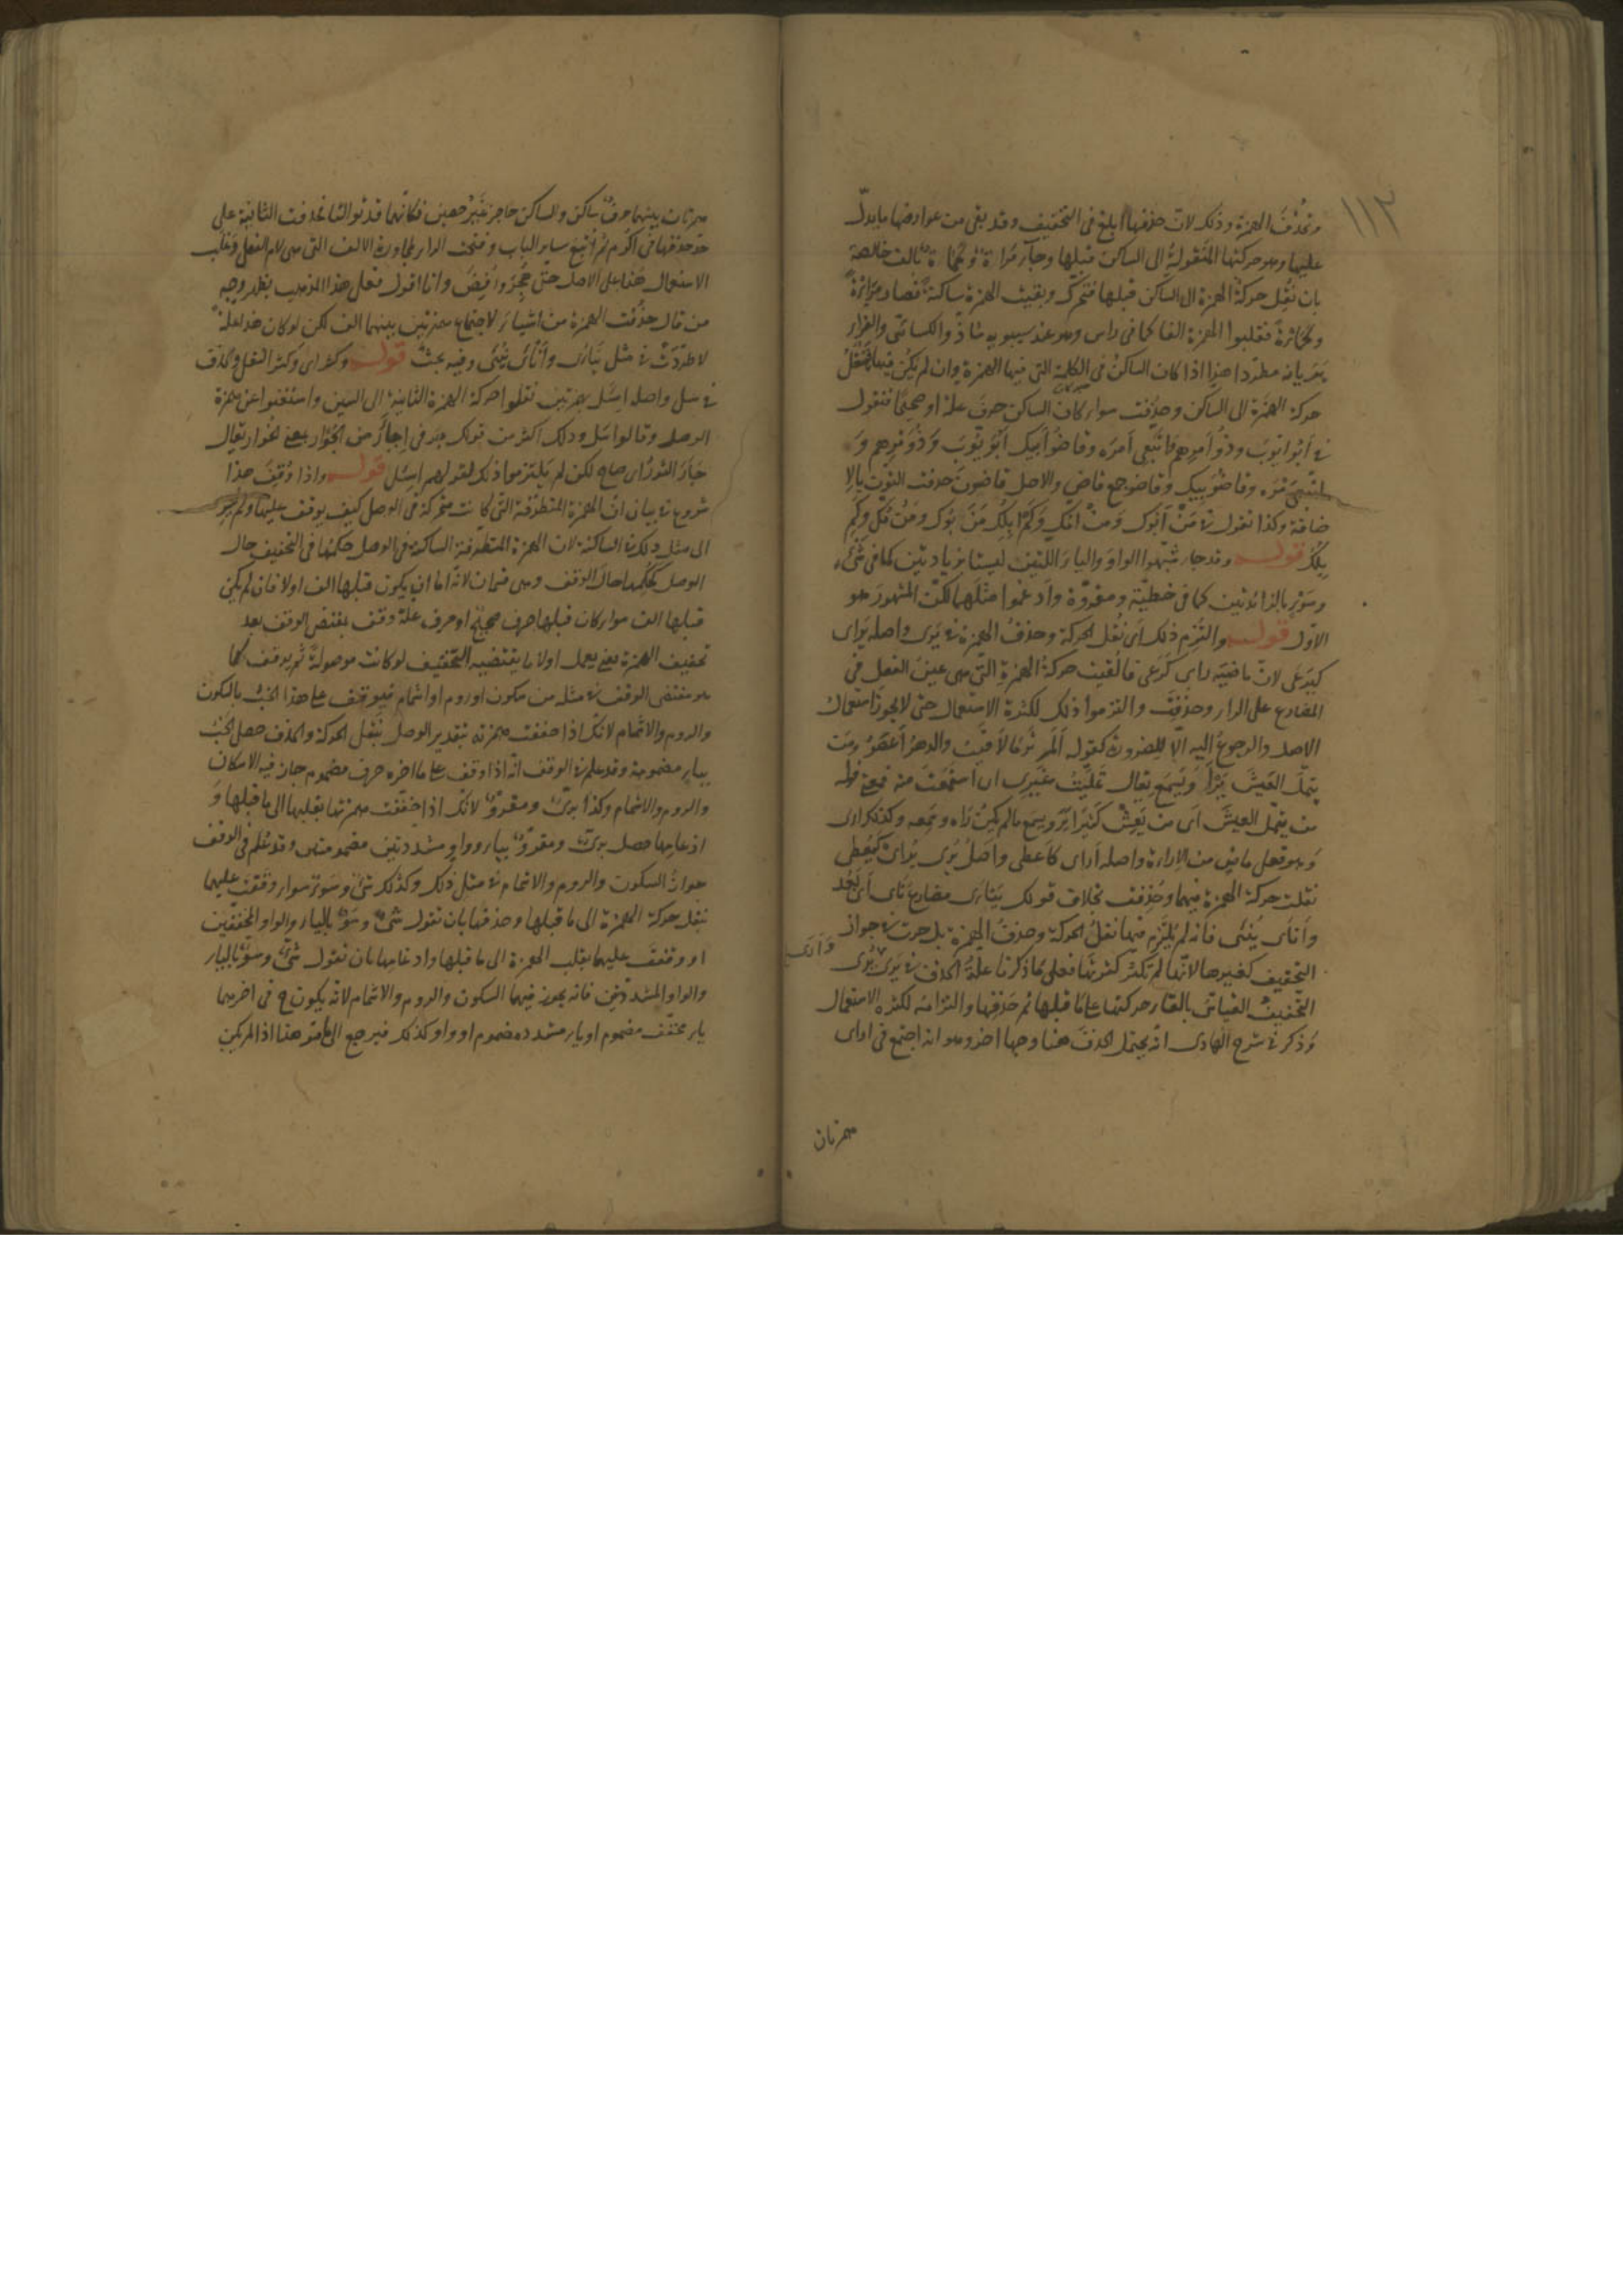 ١١٢
وتحذف الهمزة وذلك لان حذفها ابلغ فى التخفيف وقد بقى من عوارضها ما يدل
عليها وهو حركتها المنقولة الى الساكن قبلها وجآء مراة وكماة بالف خالصة
بان نقل حركة الهمزة الى الساكن قبلها فتحرك وبقيت الهمزة ساكنة فصار مراة
وكماة فقلبوا الهمزة الفا كما فى راس وهو عند سيبويه شاذ والكسائى والفراء
يريانه مطردا هذا اذا كان الساكن فى الكلمة التى فيها الهمزة وان لم يكن فيها فتنقل
حركة الهمزة الى الساكن وحذفت سواء كان الساكن حرف علة او صحيحا فتقول
فى ابو ايوب وذو امرهم واتبعى امره وقاضو ابيك ابو يوب وذو مرهم و
اتبعى مره وقاضو بيك وقاضو جمع قاض والاصل قاضون حذفت النون بالا
ضافة وكذا تقول فى من ابوك ومن امك وكم ابلك من بوك ومن مك وكم
بلك قوله وقد جاء شبهوا الواو والياء اللتين ليستا بزيادتين كما فى شىء
وسوء بالزائدتين كما فى خطية ومقروة وادغموا مثلهما لكن المشهور هو
الاول قوله والتزم ذلك اى نقل الحركة وحذف الهمزة فى يرى واصله يراى
كيرعى لان ماضيه راى كرعى فالقيت حركة الهمزة التى هى عين الفعل فى
المضارع على الراء وحذفت والتزموا ذلك لكثرة الاستعمال حتى لا يجوز استعمال
الاصل والرجوع اليه الا للضرورة كقوله الم تر ما لاقيت والدهر اعصر ومن
يتمل العيش يرا ويسمع يقال تمليت عمرى اى استمتعت منه فمعنى قوله
من يتمل العيش اى من يعش كثيرا ير ويسمع ما لم يكن راه وسمعه وكذلك ارى
وهو فعل ماض من الاراءة واصله اراى كاعطى واصل يرى يراى كيعطى
نقلت حركة الهمزة فيهما وحذفت بخلاف قولك يناى مضارع ناى اى بعد
واناى ينئى فانه لم يلتزم فيها نقل الحركة وحذف الهمزة بل جرت فى جواز
التخفيف كغيرها لانها لم تكثر كثرتها فعلى ما ذكرنا علة الحذف فى يرى ويرى
التخفيف القياسى بالقاء حركتها على ما قبلها ثم حذفها والتزامه لكثرة الاستعمال
وذكر فى شرح الهادى انه يحتمل الحذف هنا وجها اخر وهو انه اجتمع فى اراى
همزتان
همزتان بينهما حرف ساكن والساكن حاجز غير حصين فكانهما قد توالتا فحذفت الثانية على
حد حذفها فى اكرم ثم اتبع ساير الباب وفتحت الراء لمجاورة الالف التى هى لام الفعل وغلب
الاستعمال هنا على الاصل حتى هجر ورفض وانا اقول فعلى هذا المذهب يظهر وجه
من قال حذفت الهمزة من اشياء لاجتماع همزتين بينهما الف لكن لو كان هذا علة
لاطردت فى مثل يناى واناى ينئى وفيه بحث قوله وكثر اى وكثر النقل والحذف
فى سل واصله اسئل بهمزتين نقلوا حركة الهمزة الثانية الى السين واستغنوا عن همزة
الوصل وقالوا سل وذلك اكثر من قولك جر فى اجار من الجؤار بمعنى الخوار يقال
جار الثور اى صاح لكن لم يلتزموا ذلك لقولهم اسئل قوله واذا وقف هذا
شروع فى بيان ان الهمزة المتطرفة التى كانت متحركة فى الوصل كيف يوقف عليها ولم يجر
الى مثل ذلك فى الساكنة لان الهمزة المتطرفة الساكنة فى الوصل حكمها فى التخفيف حال
الوصل كحكمها حال الوقف وهى قسمان لانه اما ان يكون قبلها الف اولا فان لم يكن
قبلها الف سواء كان قبلها حرف صحيح او حرف علة وقف بمقتضى الوقف بعد
تخفيف الهمزة يعنى يعمل اولا ما يقتضيه التخفيف لو كانت موصولة ثم يوقف كما
هو مقتضى الوقف فى مثله من سكون او روم او اشمام فيوقف على هذا الخب بالسكون
والروم والاشمام لانك اذا خففت همزته بتقدير الوصل بنقل الحركة والحذف حصل الخب
بباء مضمومة وقد علم فى الوقف انه اذا وقف على ما اخره حرف مضموم جاز فيه الاسكان
والروم والاشمام وكذا برى ومقرو لانك اذا خففت همزتها بقلبها الى ما قبلها و
ادغامها حصل برى ومقرو بياء وواو مشددتين مضمومتين وقد علم فى الوقف
جواز السكون والروم والاشمام فى مثل ذلك وكذلك شىء وسوء سواء وقفت عليهما
بنقل حركة الهمزة الى ما قبلها وحذفها بان تقول شى وسو بالياء والواو المخففتين
او وقفت عليهما بقلب الهمزة الى ما قبلها وادغامها بان تقول شى وسو بالياء
والواو المشددتين فانه يجوز فيهما السكون والروم والاشمام لانه يكون ح فى اخرهما
ياء مخفف مضموم او ياء مشددة مضموم او واو كذلك فيرجع الى ما مر هذا اذا لم يكن